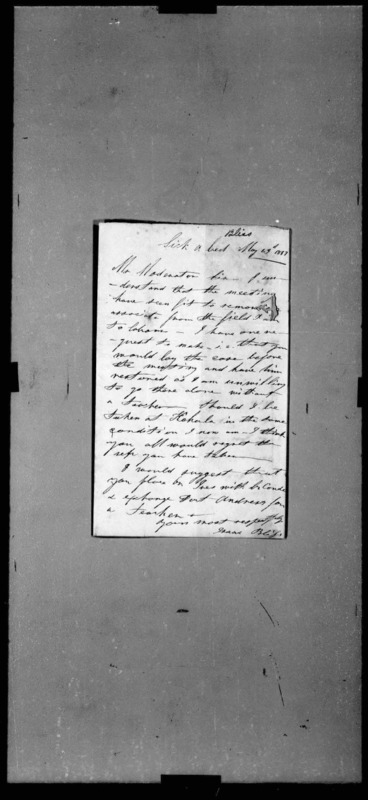 Bliss
Sick a bed May 23d 1837
Mr Moderator Sir – I un-
-derstand that the meeting
have seen fit to remove
associate from the field I am
to labour – I have one re-
-quest to make – i.e. that you
would lay the case before
the meeting and have him
restored as I am unwilling
to go there alone without
a Teacher Should I be
taken at Kohala in the same
condition I now am – I think
you all would regret the
step you have taken
I would suggest that
you place Dr with
& exchange Doct Andrews for
a Teacher –
Yours most respectfly
Isaac Bliss.